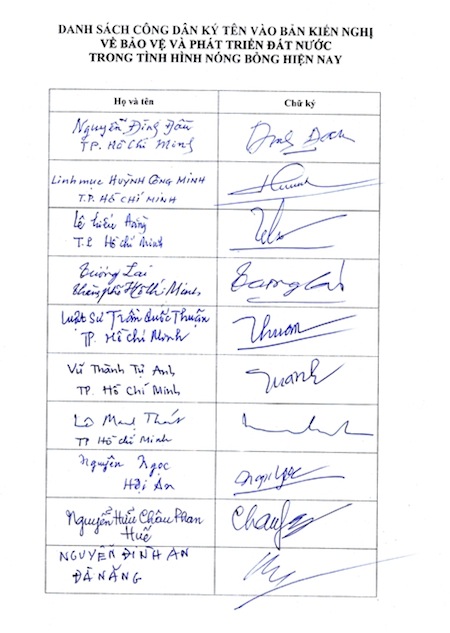 DANH SÁCH CÔNG DÂN KÝ TÊN VÀO BẢN KIẾN NGHỊ
VỀ BẢO VỆ VÀ PHÁT TRIỂN ĐẤT NƯỚC
TRONG TÌNH HÌNH NÓNG BỎNG HIỆN NAY
Họ và tên Chữ ký
Nguyễn Đình Đầu
TP. Hồ Chí Minh
Linh mục HUỲNH CÔNG MINH
T.P. HỒ CHÍ MINH
Lê Hiếu Đằng
T.P Hồ Chí Minh
Tương Lai Tương Lai
Thành phố Hồ Chí Minh
Luật sư Trần Quốc Thuận Thuan
TP. Hồ Chí Minh
Vũ Thành Tự Anh
TP. Hồ Chí Minh
Lê Mạnh Thát
TP Hồ Chí Minh
Nguyên Ngọc
Hội An
Nguyễn Hữu Châu Phan
Huế
NGUYỄN ĐÌNH AN
ĐÀ NẴNG